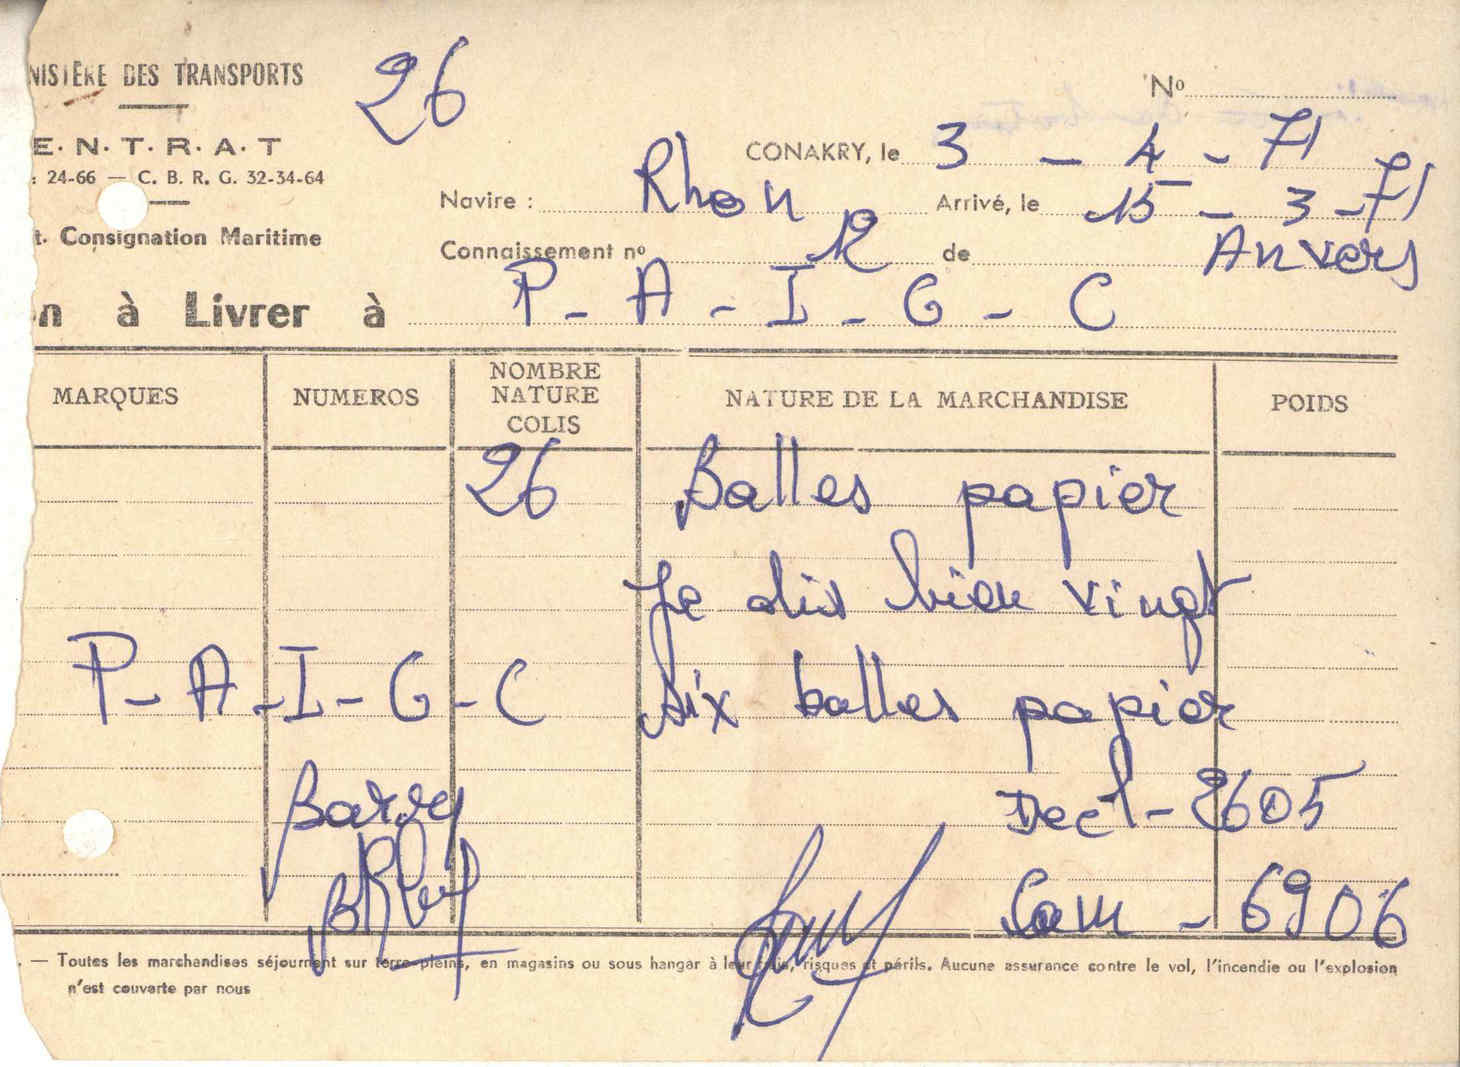 NISTÈRE DES TRANSPORTS
26
Nº
E. N. T. R. A. T
CONAKRY, le 3 - 4 - 71
: 24-66 — C. B. R. G. 32-34-64
Navire : Rhon Arrivé, le 15 - 3 - 71
t. Consignation Maritime
Connaissement nº 12 de Anvers
n à Livrer à P - A - I - G - C
MARQUES NUMEROS NOMBRE NATURE COLIS NATURE DE LA MARCHANDISE POIDS
26 Balles papier
Je dis bien vingt
P - A - I - G - C Six balles papier
Barry Decl - 2605
Cam - 6906
. — Toutes les marchandises séjournent sur terre-pleins, en magasins ou sous hangar à leur frais, risques et périls. Aucune assurance contre le vol, l'incendie ou l'explosion
n'est couverte par nous